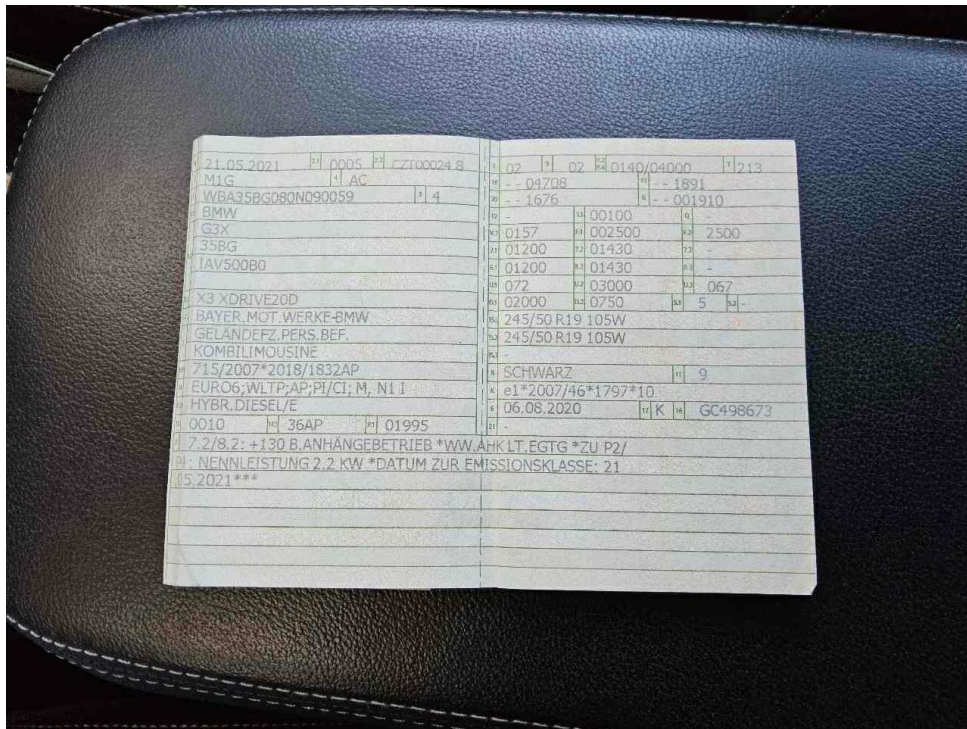 21.05.2021 2.1 0005 2.2 CZT00024 8
M1G 4 AC
WBA35BG080N090059 3 4
BMW
G3X
35BG
IAV500B0
X3 XDRIVE20D
BAYER.MOT.WERKE-BMW
GELÄNDEFZ.PERS.BEF.
KOMBILIMOUSINE
715/2007*2018/1832AP
EURO6;WLTP;AP;PI/CI; M, N1 I
HYBR.DIESEL/E
0010 36AP P.1 01995
02 9 02 0140/04000 T 213
- - 04708 - - 1891
- - 1676 G - - 001910
12 - 13 00100 Q -
0157 F.1 002500 F.2 2500
7.1 01200 7.2 01430 7.3 -
8.1 01200 8.2 01430 8.3 -
U.1 072 U.2 03000 U.3 067
O.1 02000 O.2 0750 S.1 5 S.2 -
15.1 245/50 R19 105W
15.2 245/50 R19 105W
15.3 -
R SCHWARZ 11 9
K e1*2007/46*1797*10
6 06.08.2020 17 K 16 GC498673
21 -
7.2/8.2: +130 B.ANHÄNGEBETRIEB *WW.AHK LT.EGTG *ZU P2/
P4: NENNLEISTUNG 2.2 KW *DATUM ZUR EMISSIONSKLASSE: 21
.05.2021***